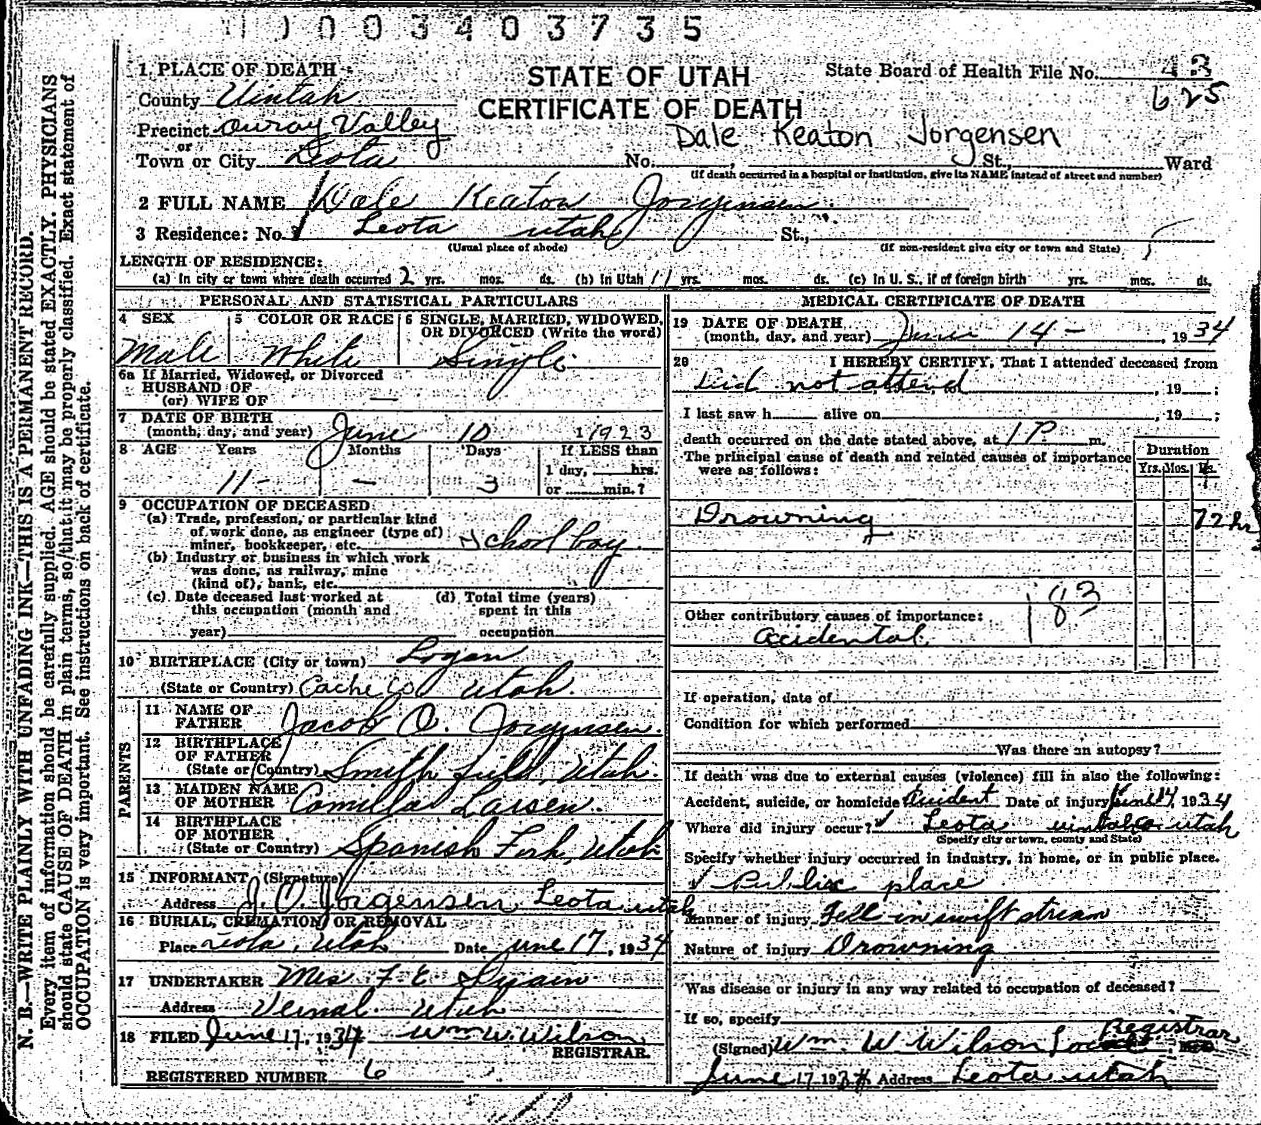 1003403735
STATE OF UTAH
CERTIFICATE OF DEATH
State Board of Health File No. 43
625
1 PLACE OF DEATH
County Uintah
Precinct Ouray Valley
or
Town or City Leota No. , St., Ward
Dale Keaton Jorgensen
(If death occurred in a hospital or institution, give its NAME instead of street and number)
2 FULL NAME Dale Keaton Jorgensen
3 Residence: No. Leota Utah St.,
(Usual place of abode) (If non-resident give city or town and State)
LENGTH OF RESIDENCE:
(a) In city or town where death occurred 2 yrs. mos. ds. (b) In Utah 11 yrs. mos. ds. (c) In U. S., if of foreign birth yrs. mos. ds.
PERSONAL AND STATISTICAL PARTICULARS
4 SEX 5 COLOR OR RACE 6 SINGLE, MARRIED, WIDOWED, OR DIVORCED (Write the word)
Male White Single
6a If Married, Widowed, or Divorced
HUSBAND OF
(or) WIFE OF —
7 DATE OF BIRTH
(month, day, and year) June 10 1923
8 AGE Years Months Days If LESS than
1 day, hrs.
or min.?
11 - — 3
9 OCCUPATION OF DECEASED
(a) Trade, profession, or particular kind
of work done, as engineer (type of)
miner, bookkeeper, etc. School boy
(b) Industry or business in which work
was done, as railway, mine
(kind of), bank, etc.
(c) Date deceased last worked at
this occupation (month and
year)
(d) Total time (years)
spent in this
occupation
10 BIRTHPLACE (City or town) Logan
(State or Country) Cache Co Utah.
PARENTS
11 NAME OF
FATHER Jacob O. Jorgensen.
12 BIRTHPLACE
OF FATHER
(State or Country) Smithfield, Utah.
13 MAIDEN NAME
OF MOTHER Camilla Larsen.
14 BIRTHPLACE
OF MOTHER
(State or Country) Spanish Fork, Utah
15 INFORMANT (Signature)
Address J. O. Jorgensen Leota Utah
16 BURIAL, CREMATION OR REMOVAL
Place Leota, Utah Date June 17, 1934
17 UNDERTAKER Mrs F. E Swain
Address Vernal Utah
18 FILED June 17, 1934 Wm W. Wilson
REGISTRAR.
REGISTERED NUMBER 6
MEDICAL CERTIFICATE OF DEATH
19 DATE OF DEATH
(month, day, and year) June 14 - , 1934
20 I HEREBY CERTIFY, That I attended deceased from
did not attend , 19 ;
I last saw h alive on , 19 ;
death occurred on the date stated above, at 1 P. m.
The principal cause of death and related causes of importance
were as follows:
Duration
Yrs. Mos. Ds.
Drowning 72 hr
183
Other contributory causes of importance:
Acidental
If operation, date of
Condition for which performed
Was there an autopsy?
If death was due to external causes (violence) fill in also the following:
Accident, suicide, or homicide Accident Date of injury June 14, 1934
Where did injury occur? Leota Uintah Co. Utah
(Specify city or town, county and State)
Specify whether injury occurred in industry, in home, or in public place.
Public place
Manner of injury Fell in swift stream
Nature of injury Drowning
Was disease or injury in any way related to occupation of deceased?
If so, specify
(Signed) Wm. W. Wilson Local Registrar
June 17 1934 Address Leota Utah
N. B.—WRITE PLAINLY WITH UNFADING INK—THIS IS A PERMANENT RECORD.
Every item of information should be carefully supplied. AGE should be stated EXACTLY. PHYSICIANS
should state CAUSE OF DEATH in plain terms, so that it may be properly classified. Exact statement of
OCCUPATION is very important. See instructions on back of certificate.